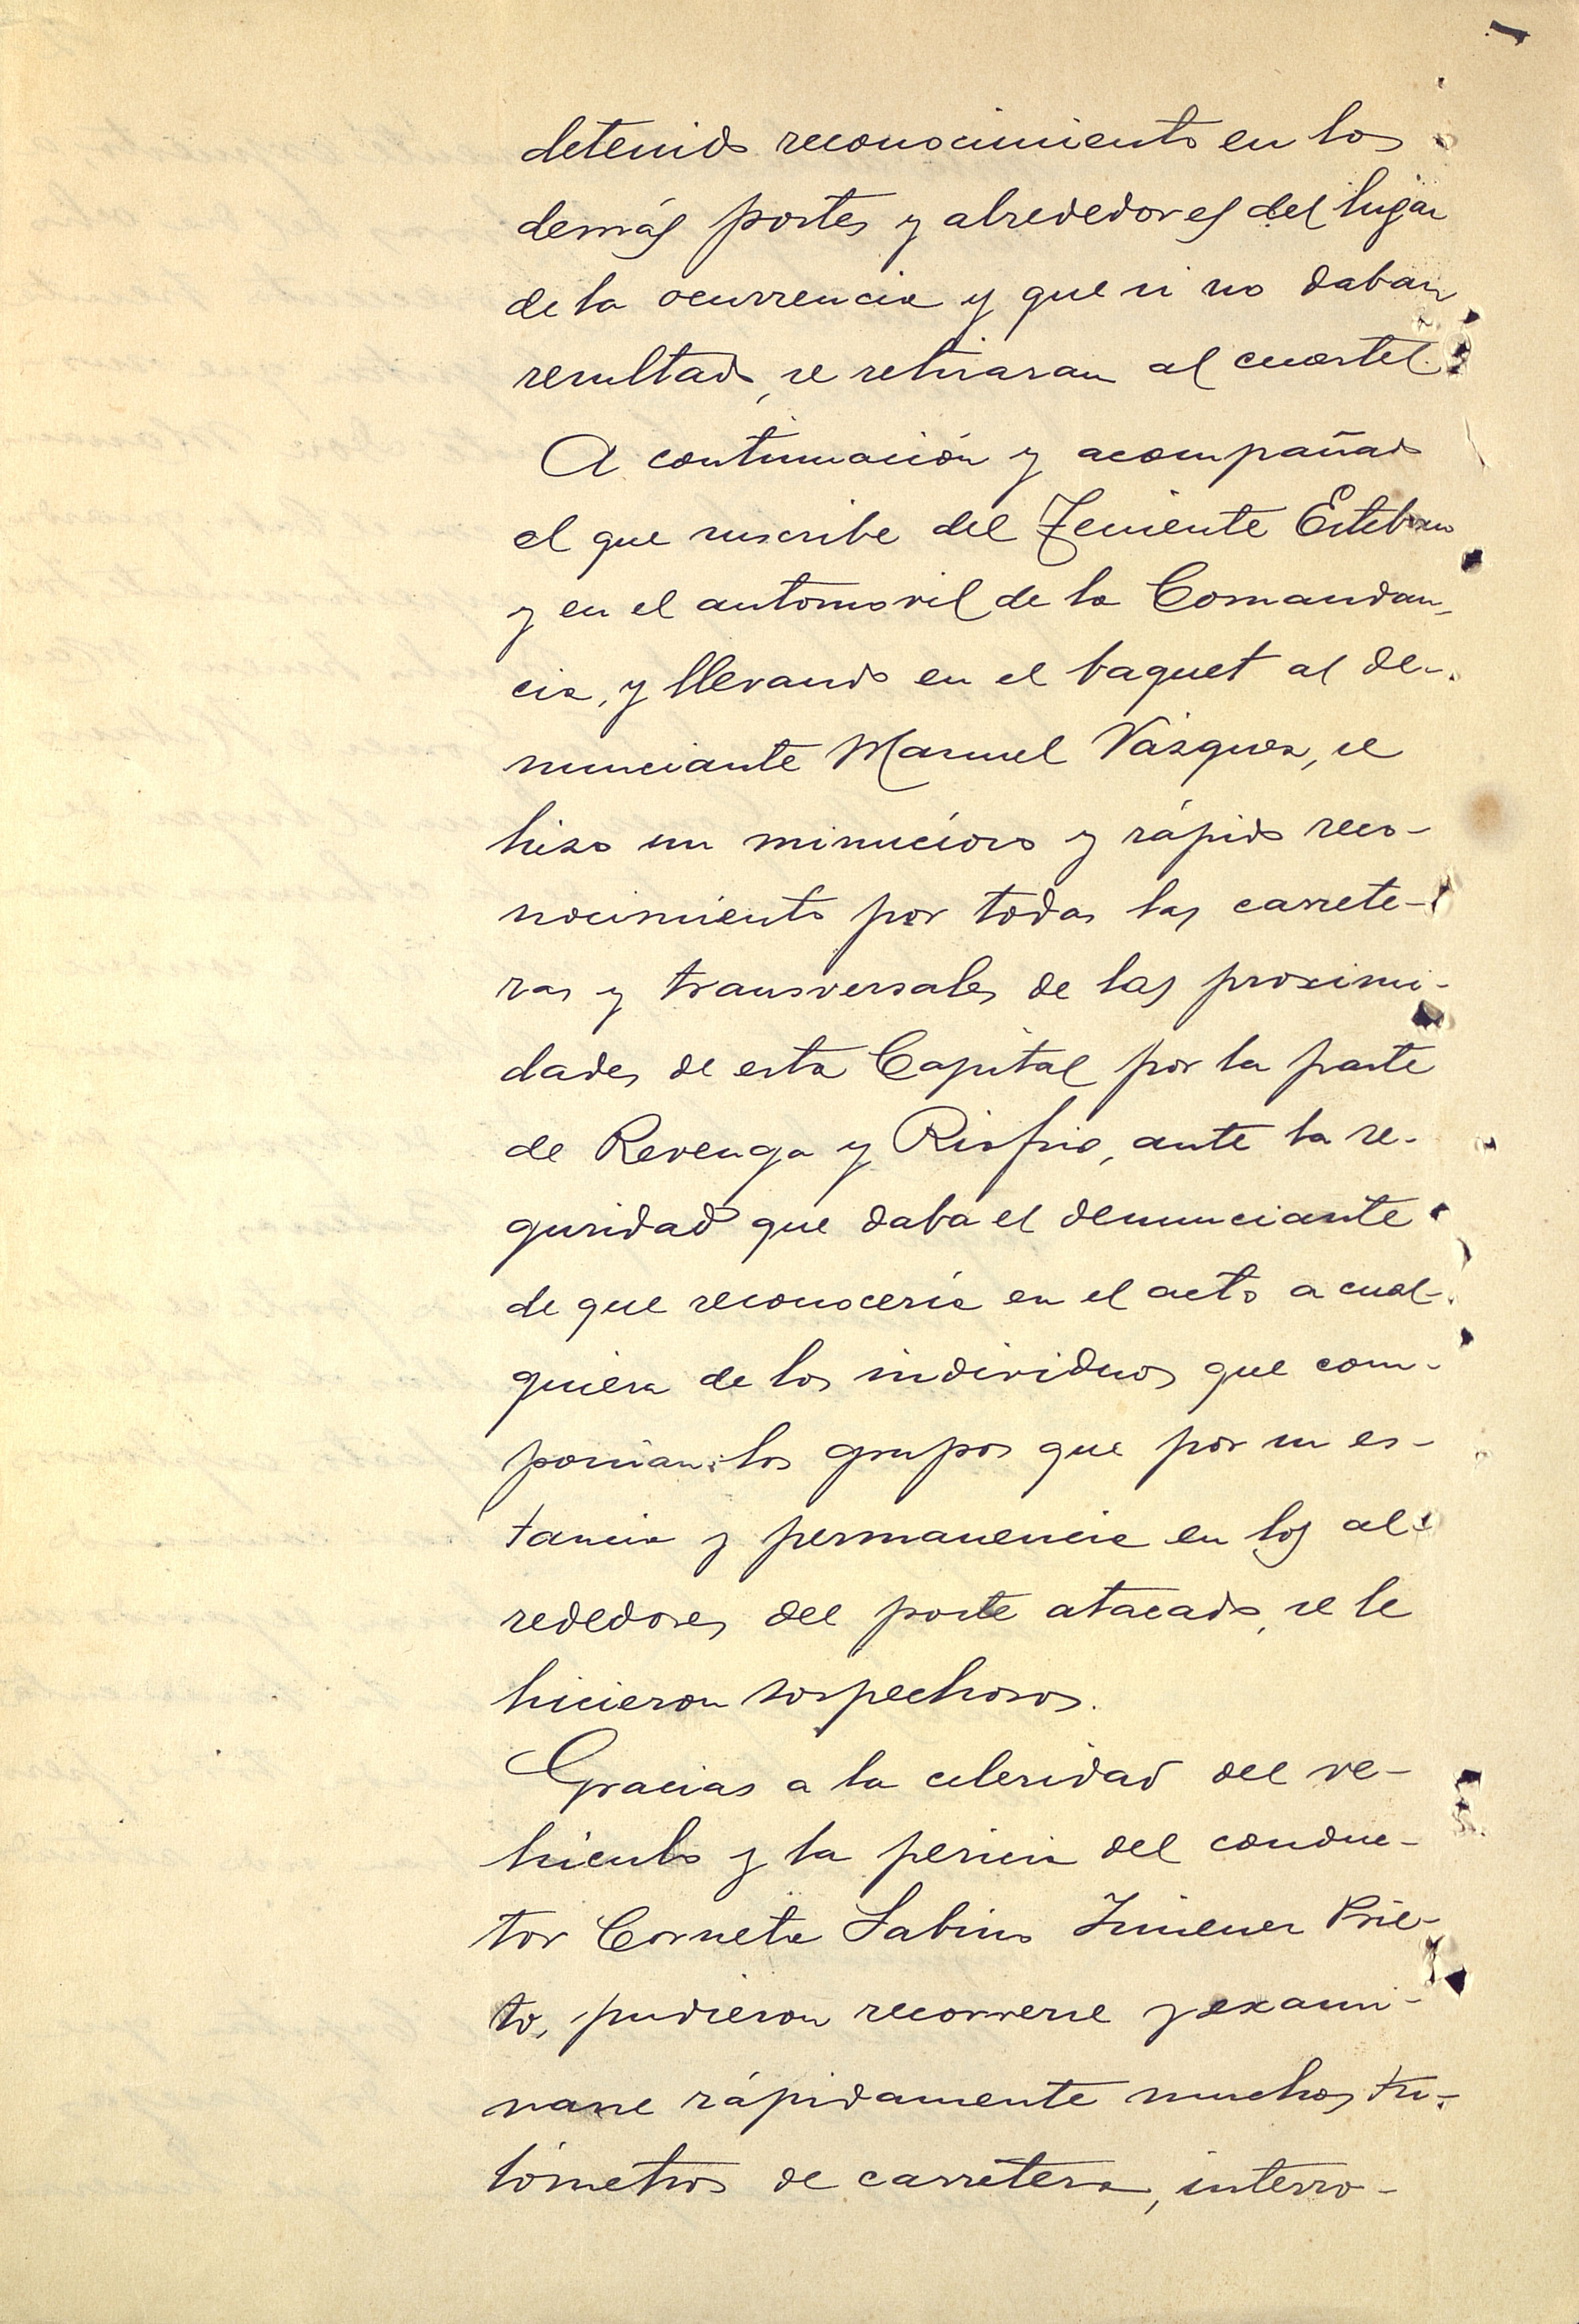 detenido reconocimiento en los
demás postes y alrededores del lugar
de la ocurrencia y que si no daban
resultado, se retiraran al cuartel.
A continuación y acompañado
el que suscribe del Teniente Esteban
y en el automovil de la Comandan-
cia, y llevando en el baquet al de-
nunciante Manuel Vázquez, se
hizo un minucioso y rápido reco-
nocimiento por todas las carrete-
ras y transversales de las proximi-
dades de esta Capital por la parte
de Revenga y Riofrio, ante la se-
guridad que daba el denunciante
de que reconocería en el acto a cual-
quiera de los individuos que com-
ponían los grupos que por su es-
tancia y permanencia en los al-
rededores del poste atacado, se le
hicieron sospechosos.
Gracias a la celeridad del ve-
hículo y la pericia del conduc-
tor Corneta Sabino Jimenez Prie-
to, pudieron recorrerse y exami-
narse rápidamente muchos ki-
lómetros de carretera, interro-